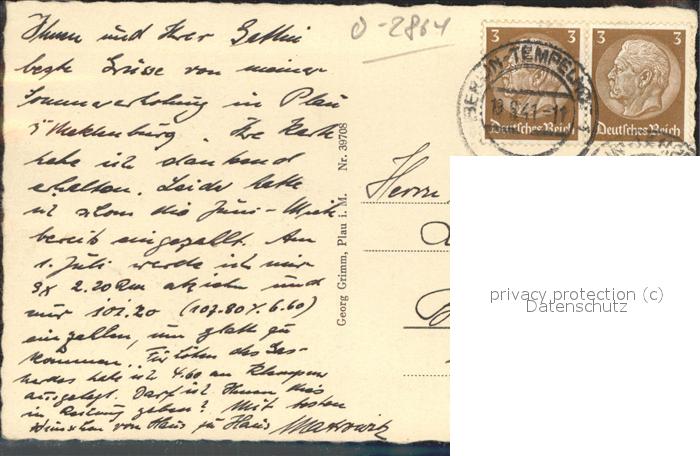 Ihnen und Ihrer Gattin
beste Grüsse von meiner
Sommererholung in Plau
i/Meklenburg. Ihre Karte
habe ich dankend
erhalten. Leider hatte
ich schon die Juni-Miete
bereits eingezahlt. Am
1. Juli werde ich mir
3x 2.20 Rm abziehen und
nur 101.20 (107.80 ./. 6.60)
einzahlen, um glatt zu
kommen. Für Löten des Gas-
herdes habe ich 4.60 an Klempner
ausgelegt. Darf ich Ihnen dies
in Rechnung geben? Mit besten
Wünschen von Haus zu Haus
O-2864
Georg Grimm, Plau i. M. Nr. 39708
3 3
Deutsches Reich Deutsches Reich
BERLIN-TEMPELHOF
41.-11
Herrn
privacy protection (c)
Datenschutz